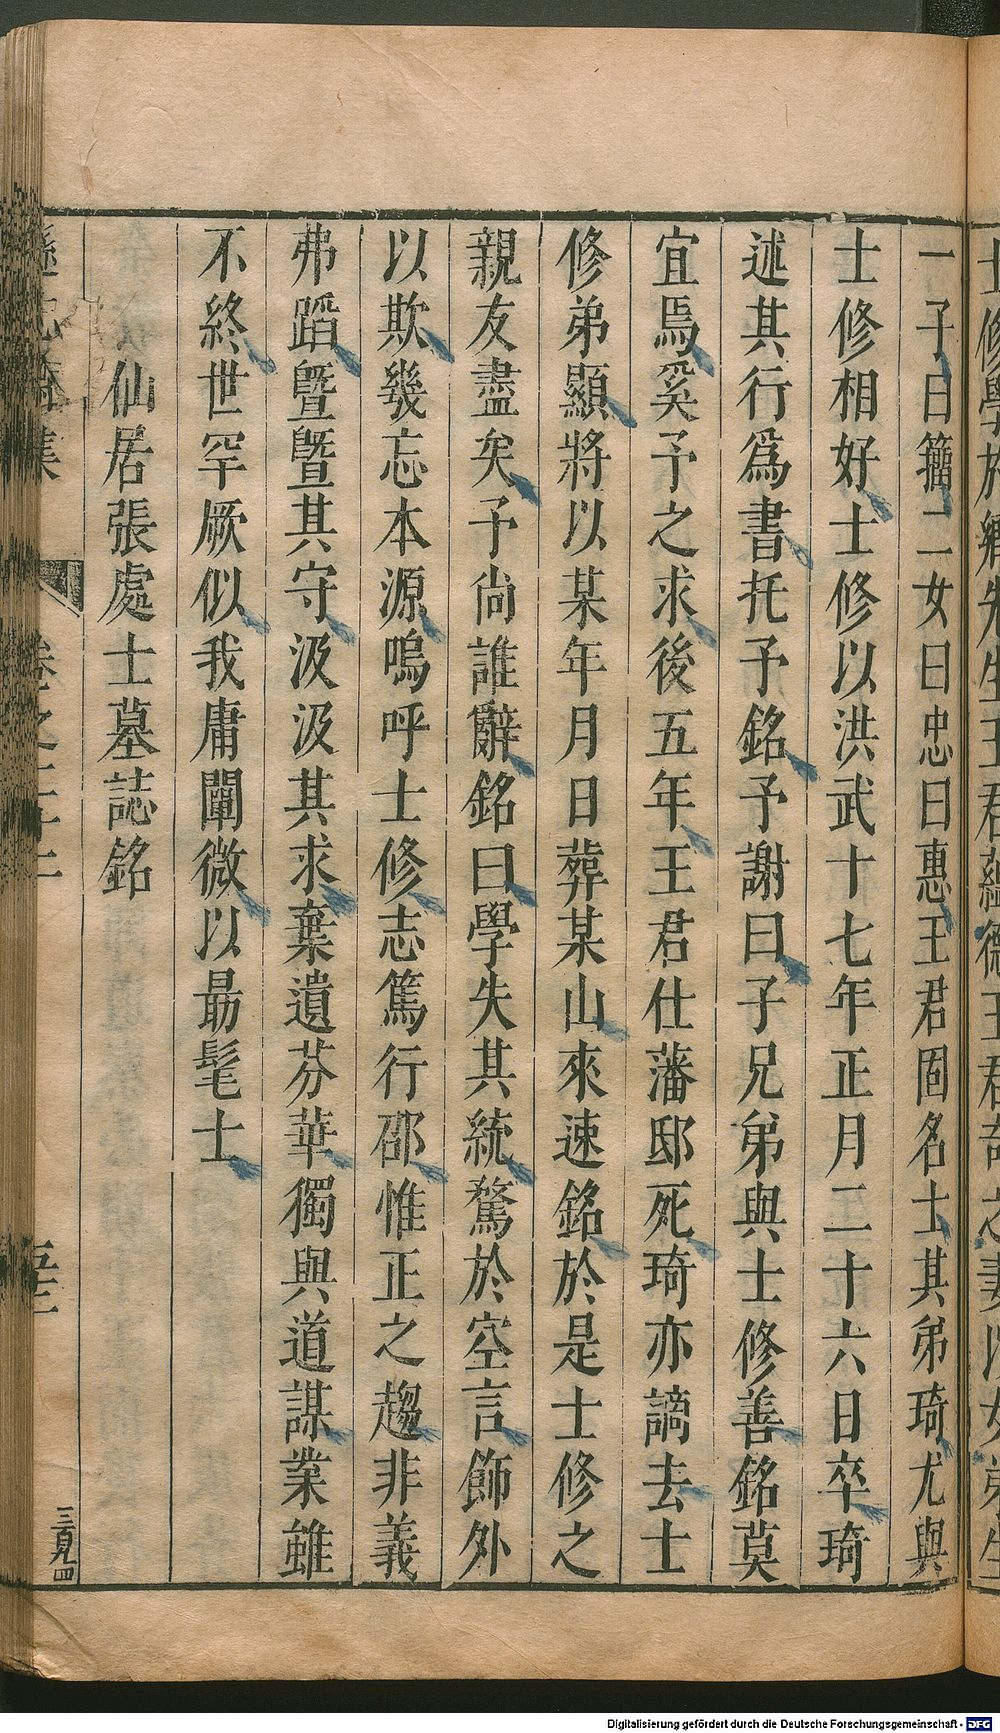 一子曰籀二女曰忠曰惠王君固名士其弟琦尤與
士修相好士修以洪武十七年正月二十六日卒琦
述其行爲書托予銘予謝曰子兄弟與士修善銘莫
宜焉奚予之求後五年王君仕藩邸死琦亦謫去士
修弟顯將以某年月日葬某山來速銘於是士修之
親友盡矣予尚誰辭銘曰學失其統騖於空言飾外
以欺幾忘本源嗚呼士修志篤行邵惟正之趨非義
弗蹈曁曁其守汲汲其求棄遺芬華獨與道謀業雖
不終世罕厥似我庸闡微以勗髦士
仙居張處士墓誌銘
Digitalisierung gefördert durch die Deutsche Forschungsgemeinschaft - DFG